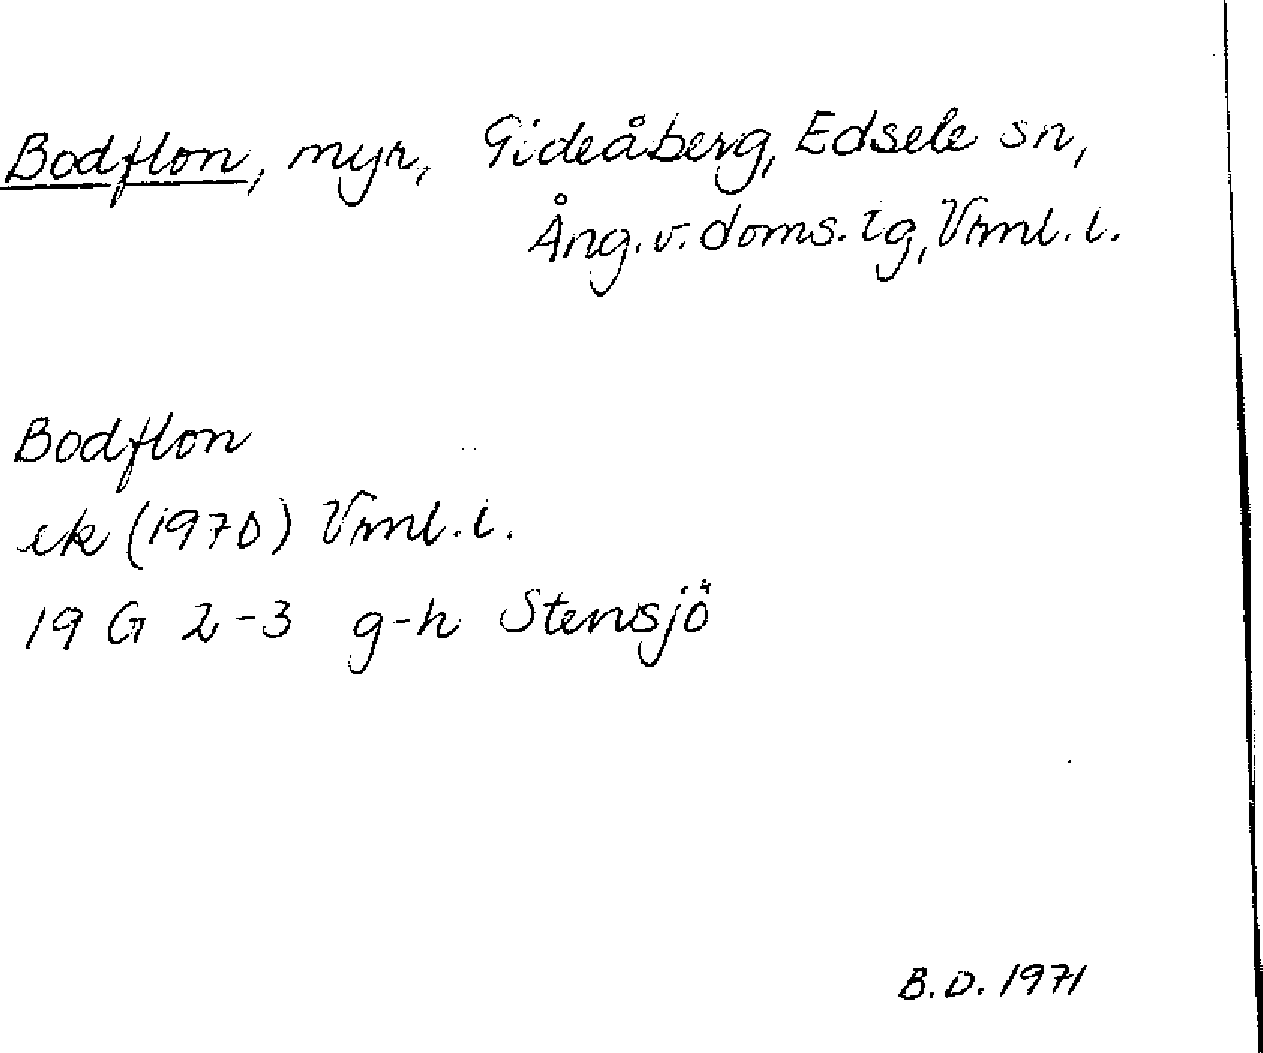 Bodflon, myr, Gideåberg, Edsele sn,
Ång. v. doms. lg, Vrml. l.
Bodflon
ek (1970) Vrml. l.
19 G 2-3 g-h Stensjö
B.D. 1971